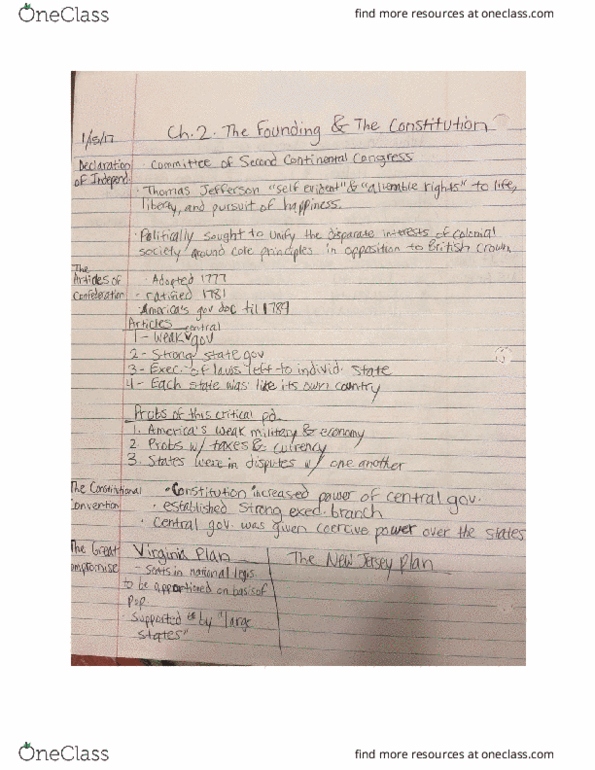 OneClass
find more resources at oneclass.com
1/15/17
Ch.2. The Founding & The Constitution
Declaration of Independ.
· Committee of Second Continental Congress
· Thomas Jefferson "self evident" & "alienable rights" to life,
liberty, and pursuit of happiness.
· Politically sought to unify the disparate interests of colonial
society around core principles in opposition to British Crown
The Articles of Confederation
· Adopted 1777
- ratified 1781
America's gov doc til 1789
Articles
1 - Weak central gov
2 - Strong state gov
3 - Exec. of laws left to individ. state
4 - Each state was like its own country
Probs of this critical pd.
1. America's weak military & economy
2 Probs w/ taxes & currency
3. States were in disputes w/ one another
The Constitutional Convention
· Constitution increased power of central gov.
· established strong exed. branch
· Central gov. was given coercive power over the states
The Great ompromise
Virginia Plan
The New Jersey Plan
- Seats in national legis
to be apportioned on basis of
pop
· Supported by "large
states"
OneClass
find more resources at oneclass.com